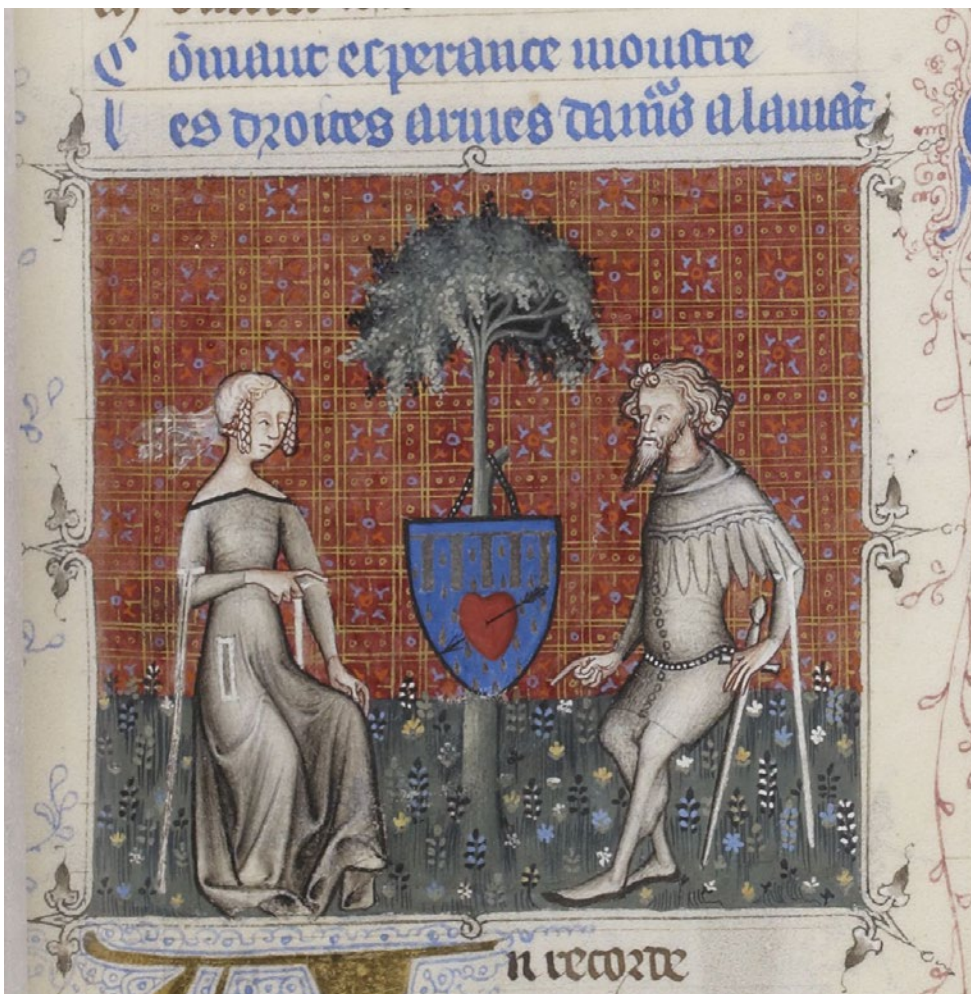 C õmant esperance moustre
l es droites armes damõs a lamãt
n recorde